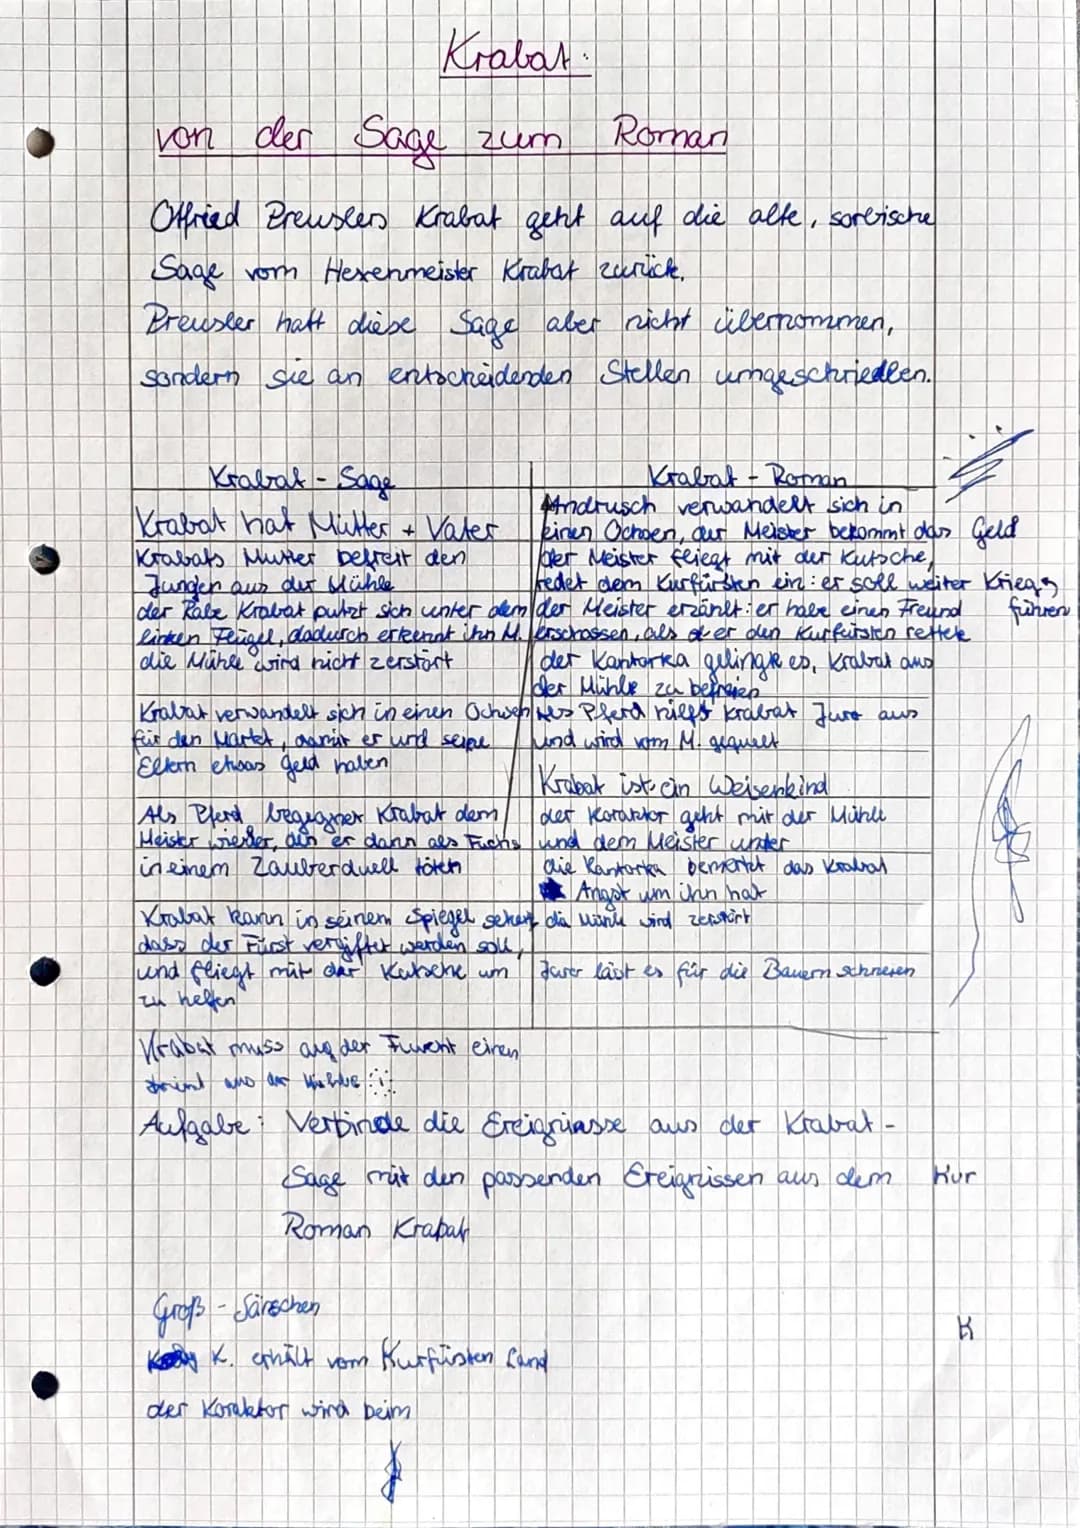 Krabat:
von der Sage zum Roman
Otfried Preuslers Krabat geht auf die alte, sorbische
Sage vom Hexenmeister Krabat zurück.
Preusler hatt diese Sage aber nicht übernommen,
sondern sie an entscheidenden Stellen umgeschrieben.
Krabat - Sage
Krabat hat Mutter + Vater
Krabats Mutter befreit den
Jungen aus der Mühle
der Rabe Krabat putzt sich unter dem
linken Flügel, dadurch erkennt ihn M.
die Mühle wird nicht zerstört
Krabat verwandelt sich in einen Ochsen
für den Markt, damit er und seine
Eltern etwas Geld haben
Als Pferd begegnet Krabat dem
Meister wieder, den er dann als Fuchs
in einem Zauberduell töten
Krabat kann in seinem Spiegel sehen
dass der Fürst vergiftet werden soll,
und fliegt mit der Kutsche um
zu helfen
Krabat muss auf der Flucht einen
aus der
Krabat - Roman
Andrusch verwandelt sich in
einen Ochsen, der Meister bekommt das Geld
der Meister fliegt mit der Kutsche,
redet dem Kurfürsten ein: er soll weiter Krieg
führen
der Meister erzählt: er habe einen Freund
erschossen, als er den Kurfürsten rettete
der Kantorka gelingt es, Krabat aus
der Mühle zu befreien
als Pferd hilft Krabat Juro aus
und wird vom M. gequält
Krabat ist ein Weisenkind
der Koraktor geht mit der Mühle
und dem Meister unter
die Kantorka bemerkt das Krabat
Angst um ihn hat
die Mühle wird zerstört
Juro läst es für die Bauern schneien
Aufgabe: Verbinde die Ereignisse aus der Krabat -
Sage mit den passenden Ereignissen aus dem Kur
Roman Krabat
Groß - Särschen
K. erhält vom Kurfürsten Land
K
der Koraktor wird beim